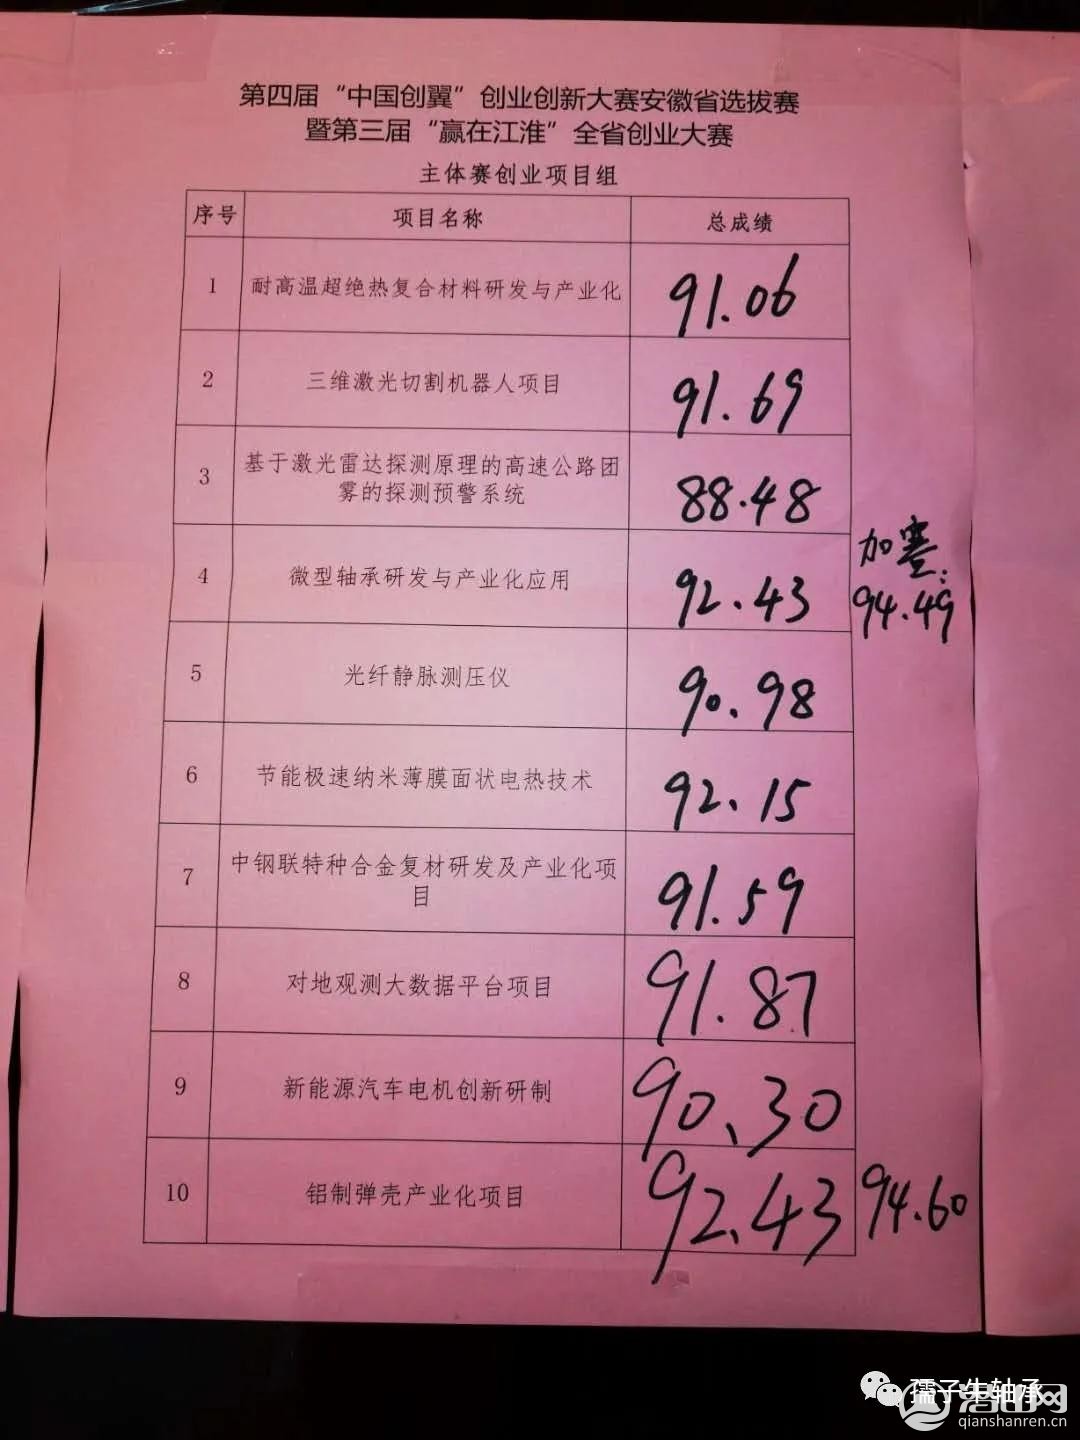 第四届“中国创翼”创业创新大赛安徽省选拔赛
暨第三届“赢在江淮”全省创业大赛
主体赛创业项目组
序号 项目名称 总成绩
1 耐高温超绝热复合材料研发与产业化 91.06
2 三维激光切割机器人项目 91.69
3 基于激光雷达探测原理的高速公路团
雾的探测预警系统 88.48
4 微型轴承研发与产业化应用 92.43
加赛:
94.49
5 光纤静脉测压仪 90.98
6 节能极速纳米薄膜面状电热技术 92.15
7 中钢联特种合金复材研发及产业化项
目 91.59
8 对地观测大数据平台项目 91.87
9 新能源汽车电机创新研制 90.30
10 铝制弹壳产业化项目 92.43 94.60
孺子牛轴承
潜山网
qianshanren.cn